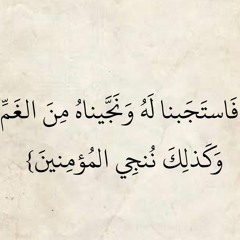 فَاستَجَبنا لَهُ وَنَجَّيناهُ مِنَ الغَمِّ
وَكَذلِكَ نُنجِي المُؤمِنينَ}